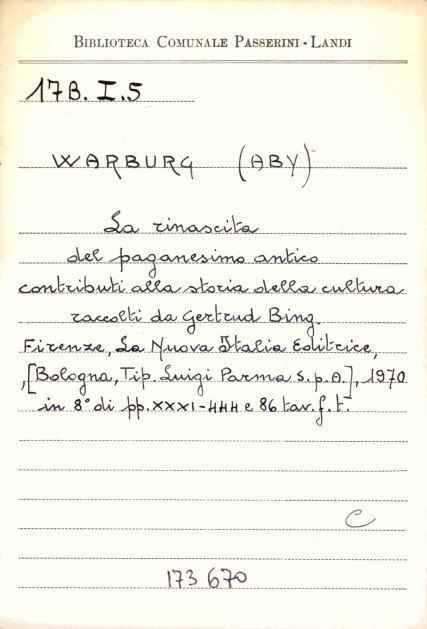 BIBLIOTECA COMUNALE PASSERINI - LANDI
17B. I.5
WARBURG (ABY)
La rinascita
del paganesimo antico
contributi alla storia della cultura
raccolti da Gertrud Bing.
Firenze, La Nuova Italia Editrice,
,[Bologna, Tip. Luigi Parma S.p.A.], 1970
in 8° di pp. XXXI-444 e 86 tav. f. t.
C
173 670